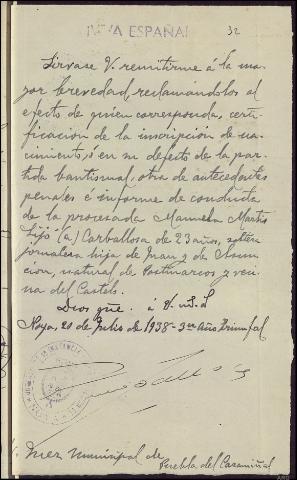 ¡VIVA ESPAÑA!
32
Sírvase V. remitirme á la ma-
yor brevedad reclamandolos al
efecto de quien corresponda, certi-
ficación de la inscripcion de na-
cimiento, ó en su defecto de la par-
tida bautismal, otra de antecedentes
penales é informe de conducta
de la procesada Manuela Martis
Lijó (a) Carballosa de 23 años, soltera
jornalera hija de Juan y de Asun-
cion, natural de Postmarcos y veci-
na del Castelo.
Dios gue. á V. m. a.
Noya, 20 de Julio de 1938 - 3er Año Triunfal
Juez municipal de
Puebla del Caramiñal